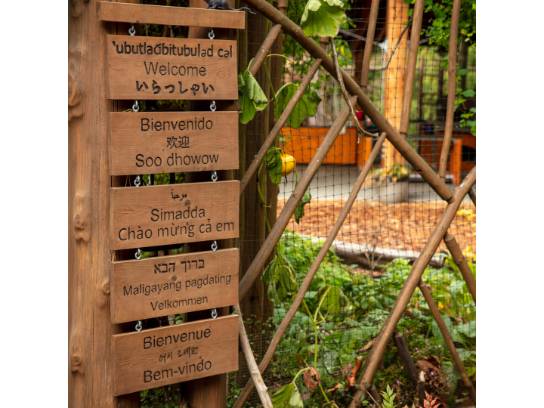 ʔubutləʔbitubuləd cəl
Welcome
いらっしゃい
Bienvenido
欢迎
Soo dhowow
مرحباً
Simadda
Chào mừng cả em
ברוך הבא
Maligayang pagdating
Velkommen
Bienvenue
어서 오세요
Bem-vindo